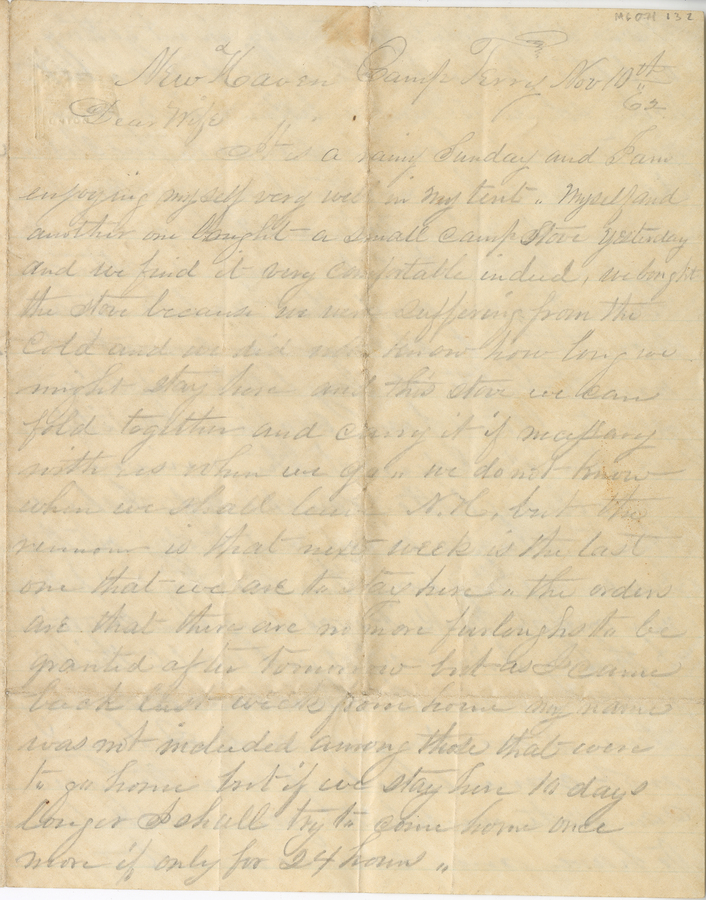 MSOH 132
New Haven Camp Terry Nov 10th
"62
Dear Wife
It is a rainy Sunday and I am
enjoying myself very well in my tent " Myself and
another one bought a small camp stove yesterday
and we find it very comfortable indeed, we bought
the stove because we were suffering from the
cold and we did not know how long we
might stay here and this stove we can
fold together and carry it if necessary
with us when we go " we do not know
when we shall leave N.H. but the
rumour is that next week is the last
one that we are to stay here " the orders
are that there are no more furloughs to be
granted after tomorrow but as I came
back last week from home my name
was not included among those that were
to go home but if we stay here 10 days
longer I shall try to come home once
more if only for 24 hours "